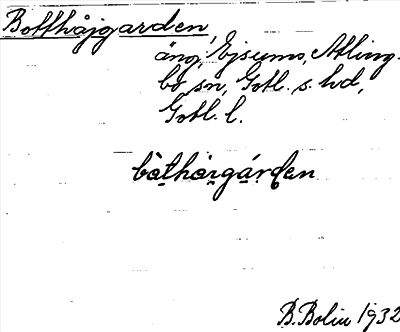 Botthåjgarden,
äng, Ejsums, Atling-
bo sn, Gotl. s. hd,
Gotl. l.
bòt̬håi̯gár̬den
B. Bolin 1932